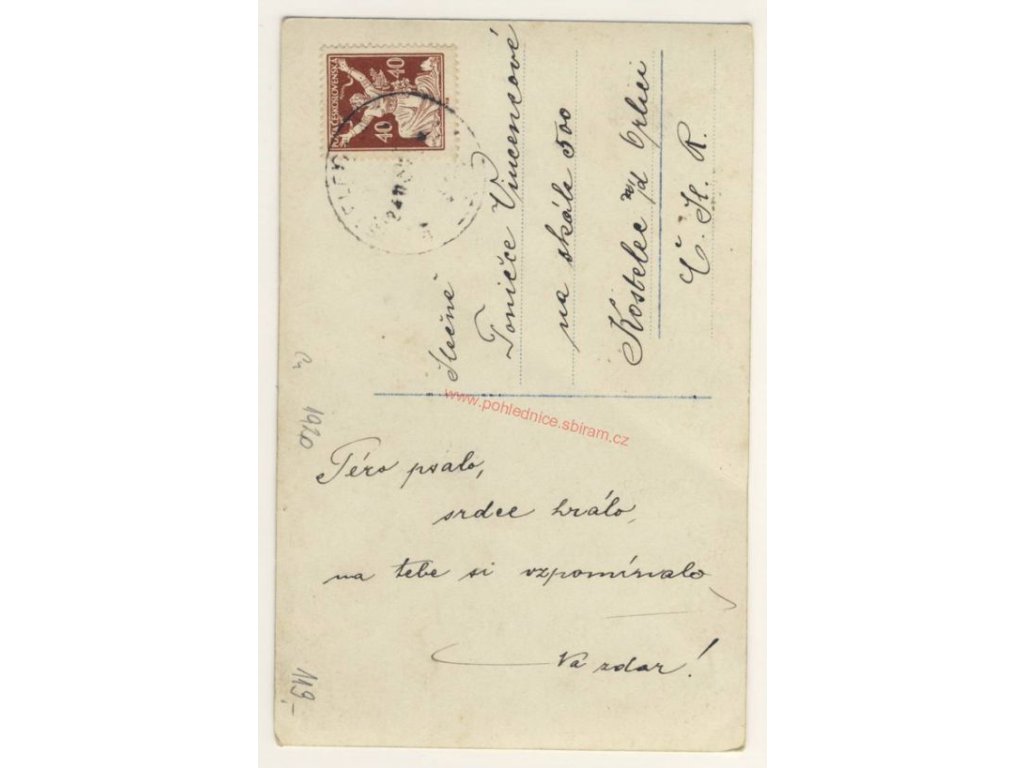 POŠTA ČESKOSLOVENSKÁ
40 40
Slečně
Toničce Vincencové
na skále 500
Kostelec n/d Orlicí
Č. Sl. R.
www.pohlednice.sbiram.cz
1920
Péro psalo,
srdce hrálo,
na tebe si vzpomínalo
Na zdar!
119,-